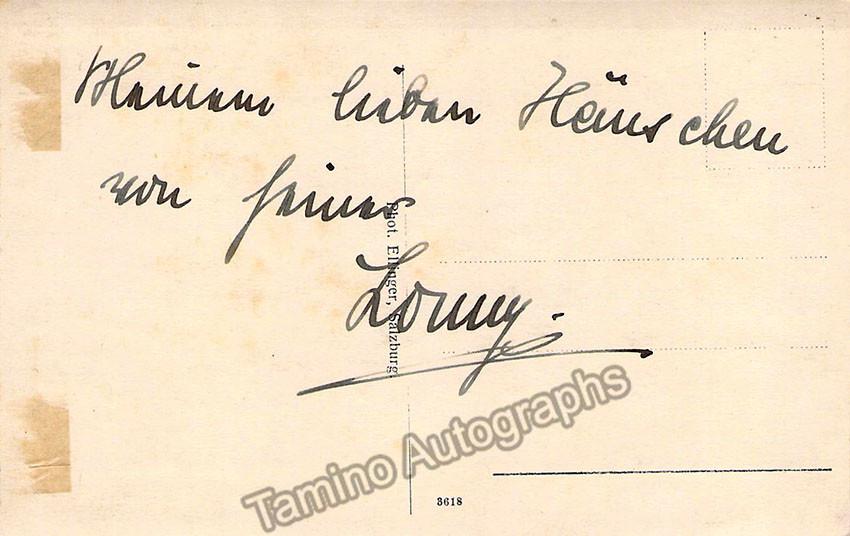 Meinem lieben Hänschen
von seiner
Lonny.
Phot. Ellinger, Salzburg.
3618
Tamino Autographs